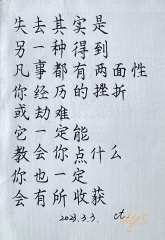 失去其实是
另一种得到
凡事都有两面性
你经历的挫折
或劫难
它一定能
教会你点什么
你也一定
会有所收获
2023.3.3.